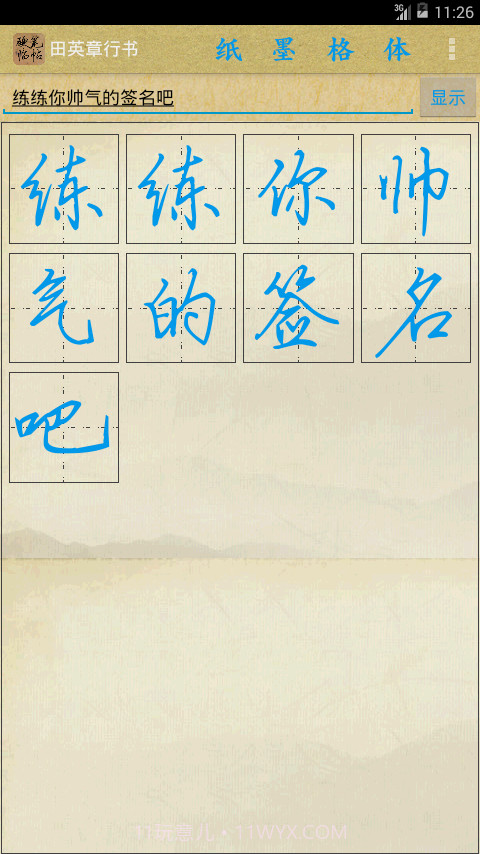 3G 11:26
硬笔临帖 田英章行书 纸 墨 格 体
练练你帅气的签名吧 显示
练练你帅
气的签名
吧
11玩意儿·11WYX.COM